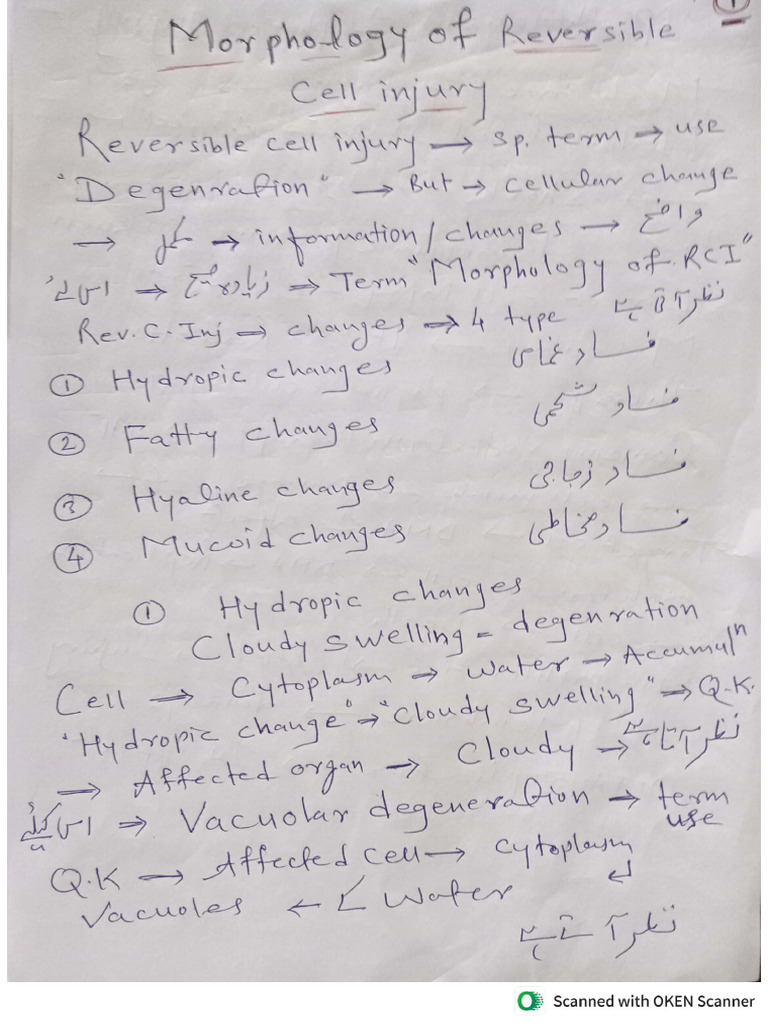 1
Morphology of Reversible
Cell injury
Reversible cell injury → sp. term → use
"Degenration" → But → cellular change
→ مکمل → information / changes → واضح
اس لئے → زیادہ صحیح → Term "Morphology of RCI"
Rev. C. Inj → changes → 4 type نظر آتا ہے
① Hydropic changes فساد غمامی
② Fatty changes فساد شحمی
③ Hyaline changes فساد زجاجی
④ Mucoid changes فساد مخاطی
① Hydropic changes
Cloudy swelling = degenration
Cell → Cytoplasm → Water → Accumulⁿ
"Hydropic change" → "Cloudy swelling" → Q.K.
⇒ Affected organ → Cloudy → نظر آتا ہے
اس کیلئے ⇒ Vacuolar degeneration → term
use
Q.K → Affected cell → cytoplasm ↵
Vacuoles ← کے Water
نظر آتے ہے
Scanned with OKEN Scanner